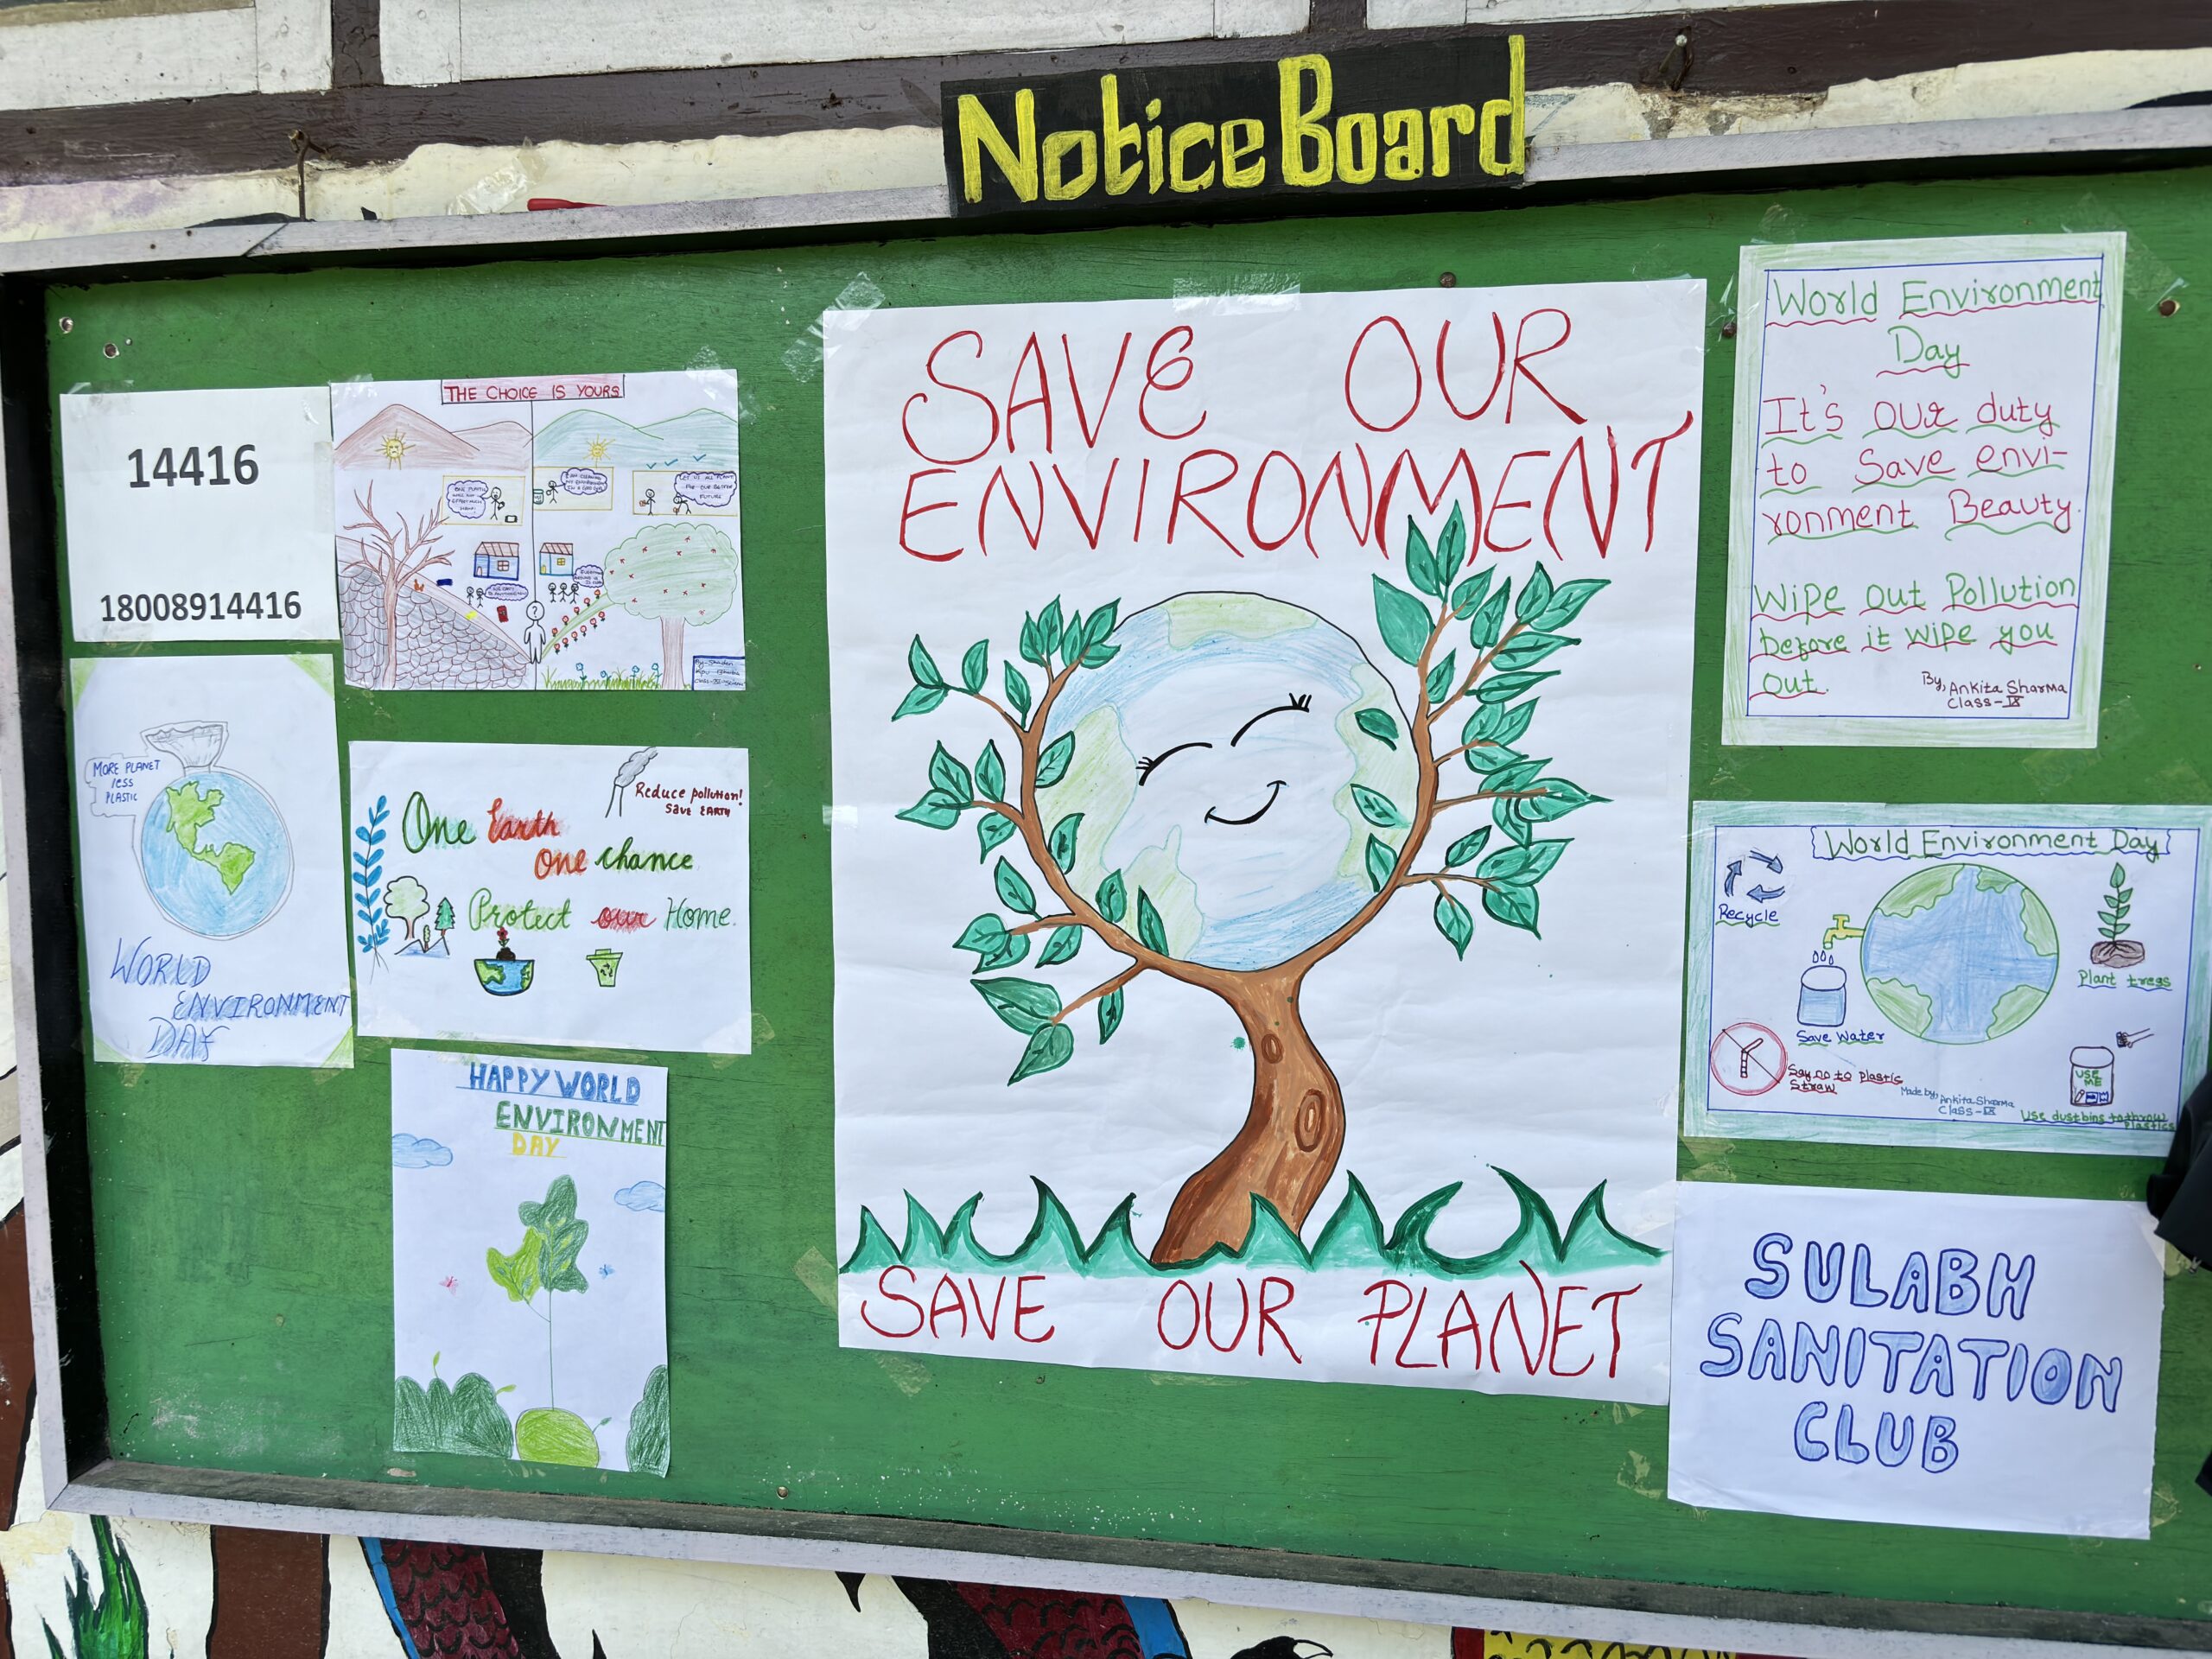 Notice Board
14416
18008914416
THE CHOICE IS YOURS
MORE PLANET
less
PLASTIC
WORLD
ENVIRONMENT
DAY
Reduce pollution!
Save EARTH
One Earth
One chance
Protect our Home.
HAPPY WORLD
ENVIRONMENT
DAY
SAVE OUR
ENVIRONMENT
SAVE OUR PLANET
World Environment
Day
It's our duty
to Save envi-
ronment Beauty.
Wipe out Pollution
before it wipe you
out.
By, Ankita Sharma
Class-IX
World Environment Day
Recycle
Save Water
Plant trees
Say no to plastic
Straw
Made by, Ankita Sharma
Class-IX
USE
ME
Use dustbins to throw
plastics
SULABH
SANITATION
CLUB